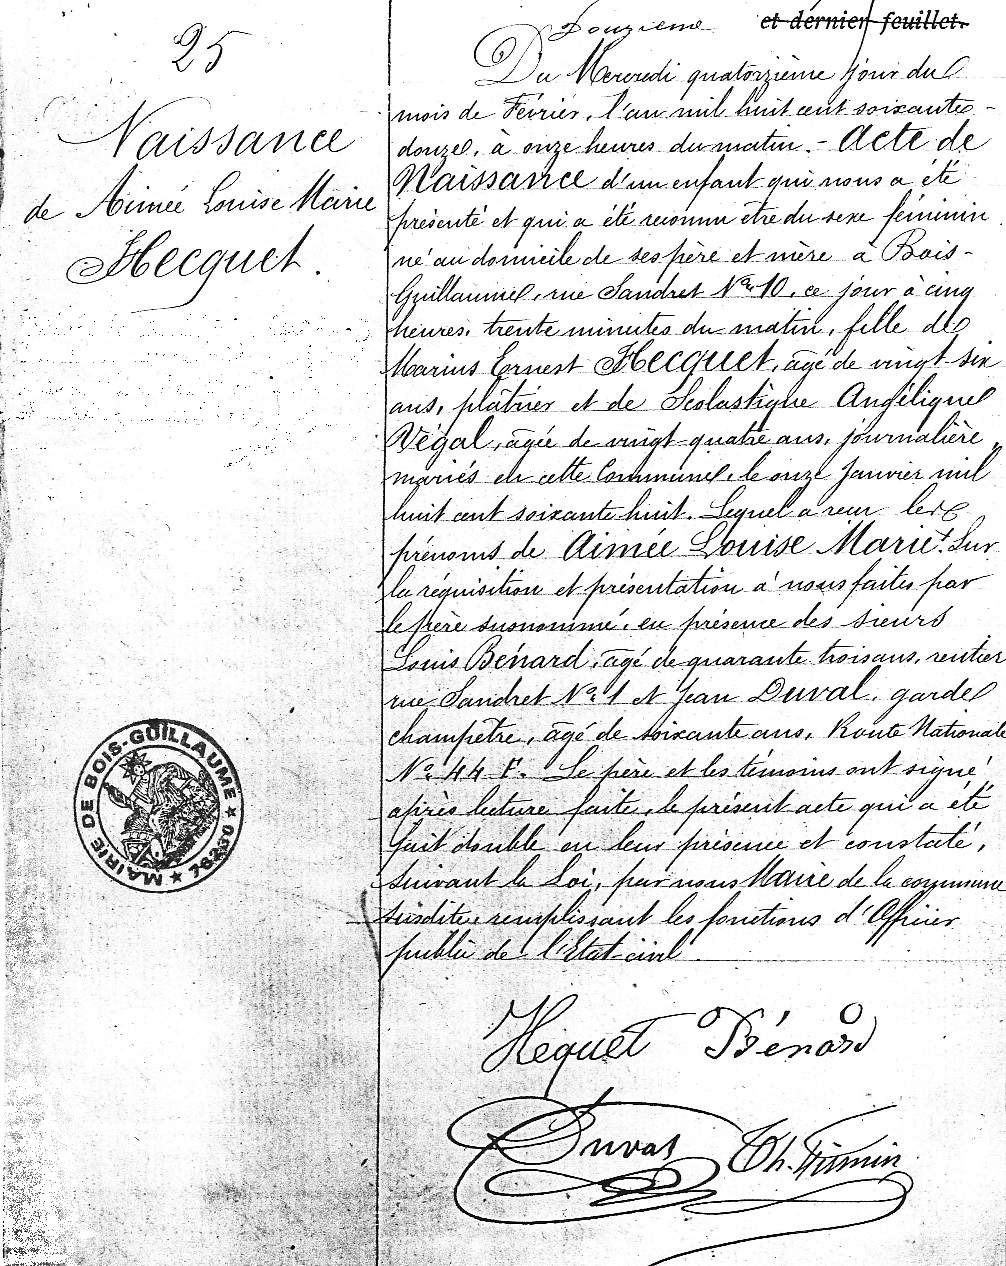 Douzième et dernier feuillet.
25
Naissance
de Aimée Louise Marie
Hecquet.
Du Mercredi quatorzième jour du
mois de Février, l'an mil huit cent soixante-
douze, à onze heures du matin. - Acte de
Naissance d'un enfant qui nous a été
présenté et qui a été reconnu être du sexe féminin
né au domicile de ses père et mère à Bois-
Guillaume, rue Sandret No. 10, ce jour à cinq
heures, trente minutes du matin, fille de
Marius Ernest Hecquet, âgé de vingt-six
ans, plâtrier et de Scolastique Angélique
Végal, âgée de vingt-quatre ans, journalière,
mariés en cette Commune, le onze Janvier mil
huit cent soixante huit. Lequel a reçu les
prénoms de Aimée Louise Marie. Sur
la réquisition et présentation à nous faites par
le père susnommé, en présence des sieurs
Louis Bénard, âgé de quarante trois ans, rentier
rue Sandret No. 1 et Jean Duval, garde
champêtre, âgé de soixante ans, Route Nationale
No. 44 F. Le père et les témoins ont signé
après lecture faite, le présent acte qui a été
fait double en leur présence et constaté,
suivant la Loi, par nous Maire de la commune
susdite, remplissant les fonctions d'Officier
public de l'Etat-civil.
MAIRIE DE BOIS-GUILLAUME ★ 76230 ★
Hequet Bénard
Duval Th. Firmin